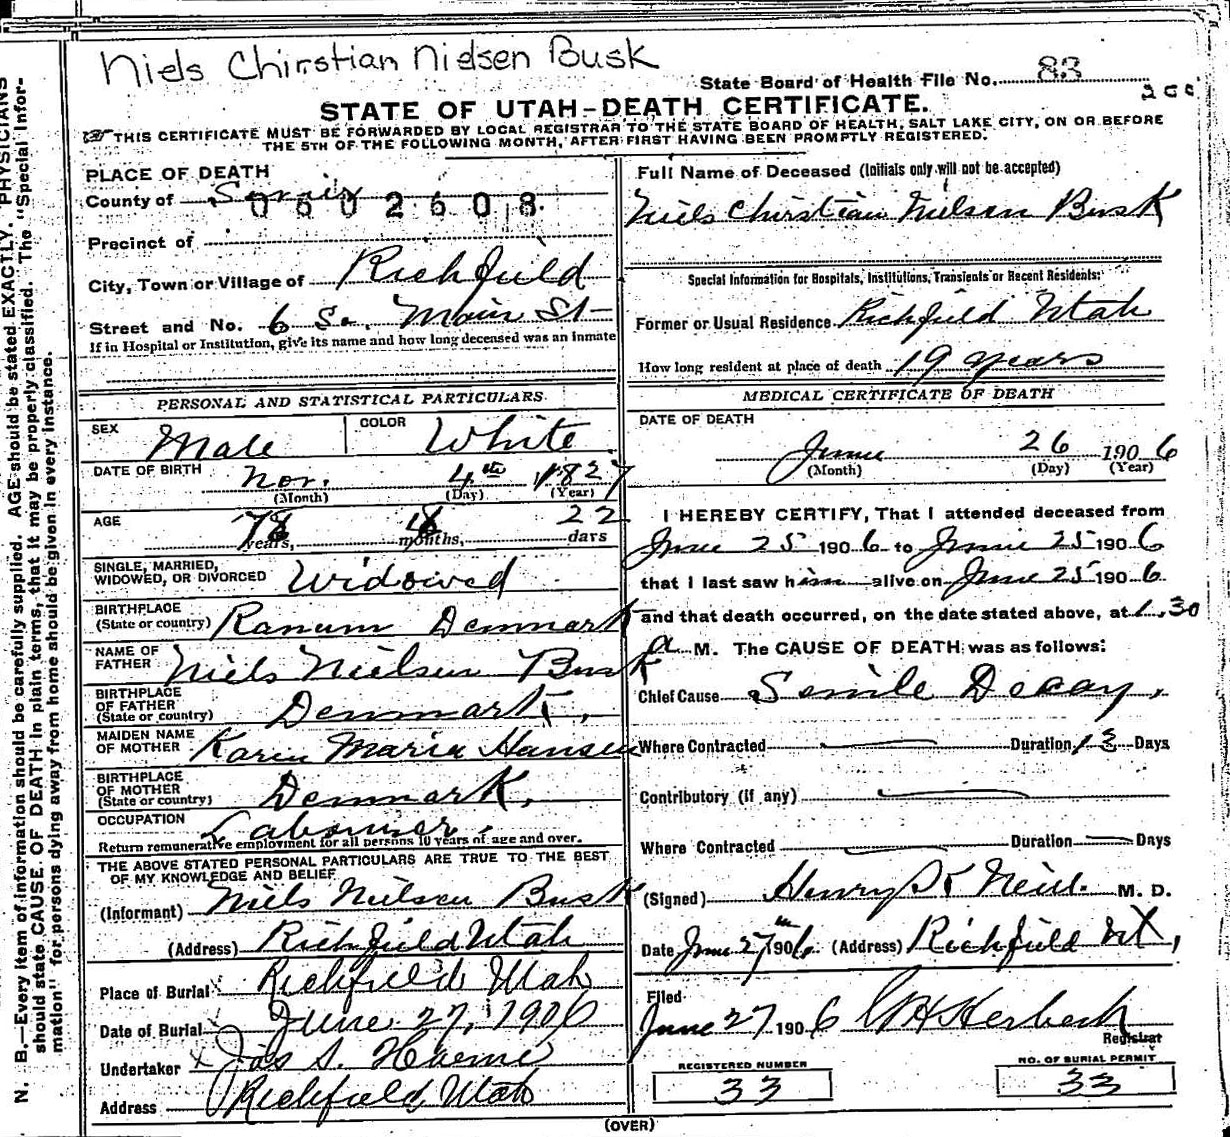 Niels Chirstian Nielsen Busk
State Board of Health File No. 83
STATE OF UTAH-DEATH CERTIFICATE.
THIS CERTIFICATE MUST BE FORWARDED BY LOCAL REGISTRAR TO THE STATE BOARD OF HEALTH, SALT LAKE CITY, ON OR BEFORE
THE 5TH OF THE FOLLOWING MONTH, AFTER FIRST HAVING BEEN PROMPTLY REGISTERED.
N. B.—Every item of information should be carefully supplied. AGE should be stated EXACTLY. PHYSICIANS
should state CAUSE OF DEATH in plain terms, that it may be properly classified. The "Special Infor-
mation" for persons dying away from home should be given in every instance.
PLACE OF DEATH
County of Sevier
0602608
Precinct of
City, Town or Village of Richfield
Street and No. 6 So. Main St
If in Hospital or Institution, give its name and how long deceased was an inmate
PERSONAL AND STATISTICAL PARTICULARS.
SEX Male COLOR White
DATE OF BIRTH Nov. 4th 1827
(Month) (Day) (Year)
AGE 78 22
years, months, days
SINGLE, MARRIED,
WIDOWED, OR DIVORCED Widowed
BIRTHPLACE
(State or country) Ranum Denmark
NAME OF
FATHER Niels Nielsen Busk
BIRTHPLACE
OF FATHER
(State or country) Denmark,
MAIDEN NAME
OF MOTHER Karen Maria Hansen
BIRTHPLACE
OF MOTHER
(State or country) Denmark.
OCCUPATION Labourer.
Return remunerative employment for all persons 10 years of age and over.
THE ABOVE STATED PERSONAL PARTICULARS ARE TRUE TO THE BEST
OF MY KNOWLEDGE AND BELIEF
(Informant) Niels Nielsen Busk
(Address) Richfield Utah
Place of Burial Richfield Utah
Date of Burial June 27, 1906
Undertaker Jas S.
Address Richfield Utah
Full Name of Deceased (Initials only will not be accepted)
Niels Chirstian Nielsen Busk
Special Information for Hospitals, Institutions, Transients or Recent Residents:
Former or Usual Residence Richfield Utah
How long resident at place of death 19 years
MEDICAL CERTIFICATE OF DEATH
DATE OF DEATH
June 26 1906
(Month) (Day) (Year)
I HEREBY CERTIFY, That I attended deceased from
June 25 1906 to June 25 1906
that I last saw him alive on June 25 1906
and that death occurred, on the date stated above, at 1.30
a M. The CAUSE OF DEATH was as follows:
Chief Cause Senile Decay,
Where Contracted Duration 13 Days
Contributory (if any)
Where Contracted Duration Days
(Signed) Henry K Neill. M. D.
Date June 27th 1906. (Address) Richfield Ut,
Filed
June 27 1906
Registrar
REGISTERED NUMBER
33
NO. OF BURIAL PERMIT
33
(OVER)